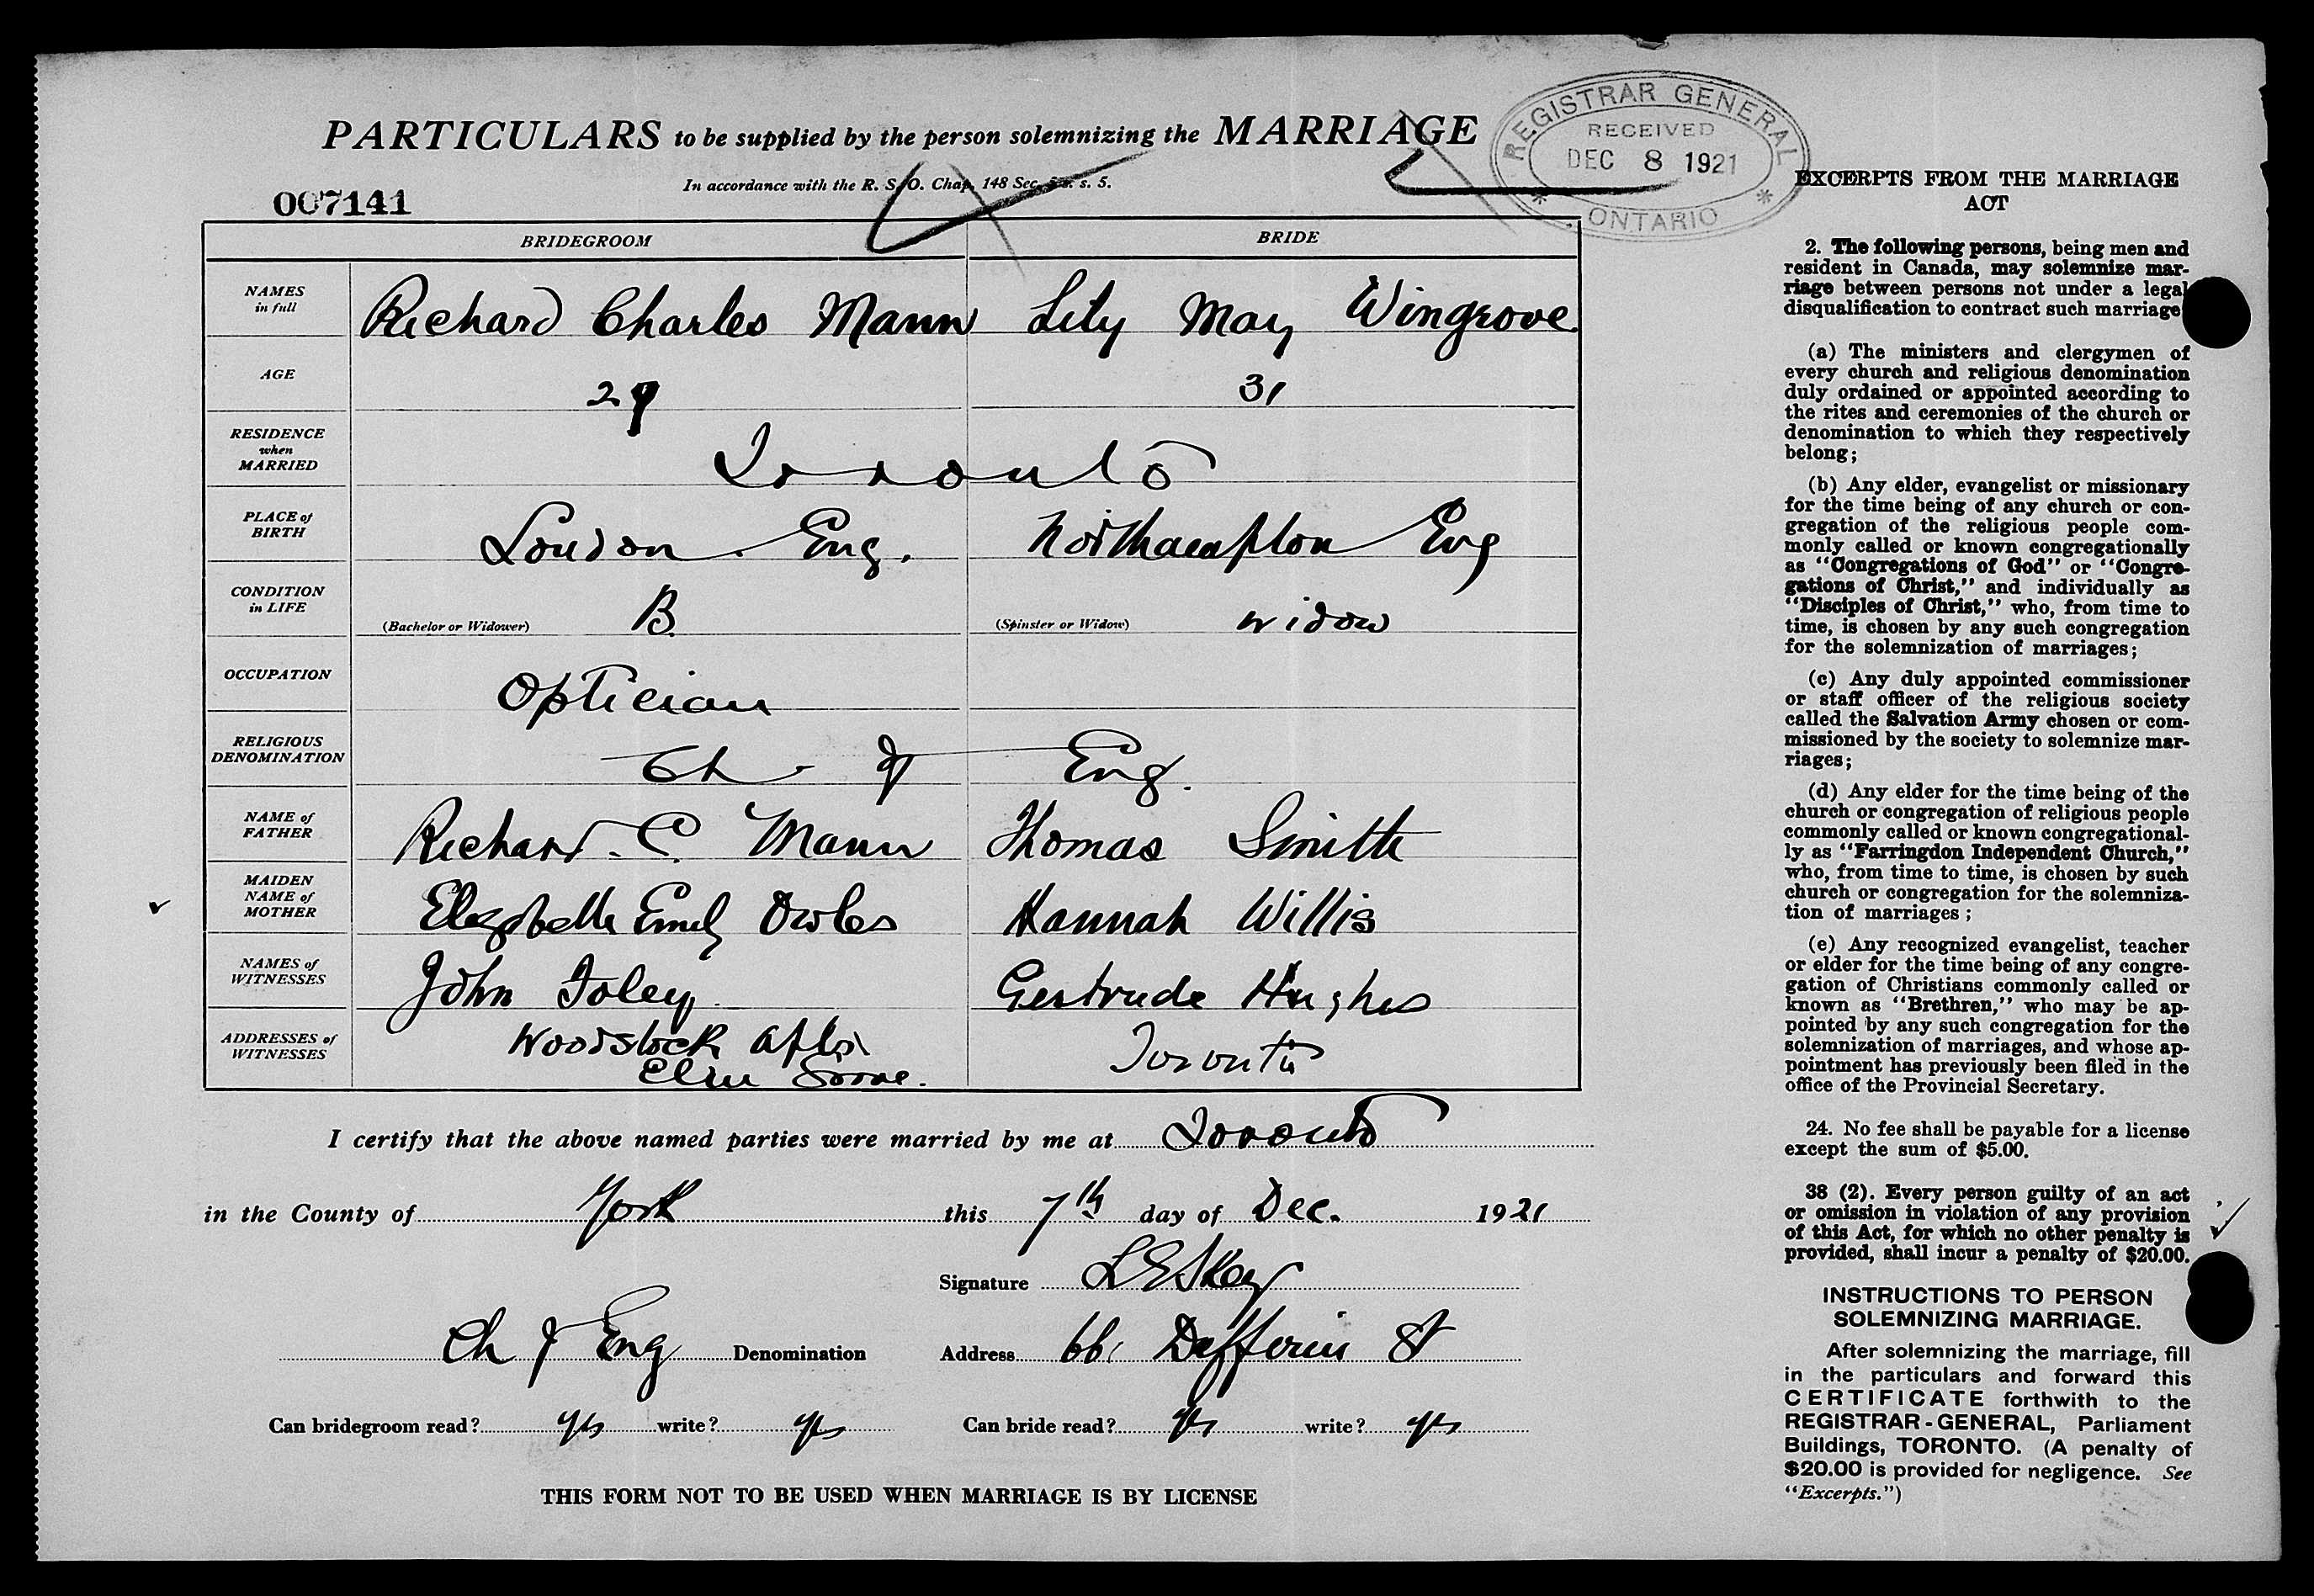 PARTICULARS to be supplied by the person solemnizing the MARRIAGE
In accordance with the R. S. O. Chap. 148 Sec. s. 5.
007141
REGISTRAR GENERAL
RECEIVED
DEC 8 1921
ONTARIO
BRIDEGROOM BRIDE
NAMES in full Richard Charles Mann Lily May Wingrove
AGE 29 31
RESIDENCE when MARRIED Toronto
PLACE of BIRTH London. Eng. Northampton Eng
CONDITION in LIFE (Bachelor or Widower) B. (Spinster or Widow) widow
OCCUPATION Optician
RELIGIOUS DENOMINATION Ch of Eng.
NAME of FATHER Richard. C. Mann Thomas Smith
MAIDEN NAME of MOTHER Elizabeth Emily Owles Hannah Willis
NAMES of WITNESSES John Foley. Gertrude Hughes
ADDRESSES of WITNESSES Woodstock Apts. Toronto
Elm
I certify that the above named parties were married by me at Toronto
in the County of York this 7th day of Dec. 1921
Signature L E Skey
Ch of Eng Denomination Address Dufferin St
Can bridegroom read? yes write? yes Can bride read? yes write? yes
THIS FORM NOT TO BE USED WHEN MARRIAGE IS BY LICENSE
EXCERPTS FROM THE MARRIAGE
ACT
2. The following persons, being men and
resident in Canada, may solemnize mar-
riage between persons not under a legal
disqualification to contract such marriage
(a) The ministers and clergymen of
every church and religious denomination
duly ordained or appointed according to
the rites and ceremonies of the church or
denomination to which they respectively
belong;
(b) Any elder, evangelist or missionary
for the time being of any church or con-
gregation of the religious people com-
monly called or known congregationally
as "Congregations of God" or "Congre-
gations of Christ," and individually as
"Disciples of Christ," who, from time to
time, is chosen by any such congregation
for the solemnization of marriages;
(c) Any duly appointed commissioner
or staff officer of the religious society
called the Salvation Army chosen or com-
missioned by the society to solemnize mar-
riages;
(d) Any elder for the time being of the
church or congregation of religious people
commonly called or known congregational-
ly as "Farringdon Independent Church,"
who, from time to time, is chosen by such
church or congregation for the solemniza-
tion of marriages;
(e) Any recognized evangelist, teacher
or elder for the time being of any congre-
gation of Christians commonly called or
known as "Brethren," who may be ap-
pointed by any such congregation for the
solemnization of marriages, and whose ap-
pointment has previously been filed in the
office of the Provincial Secretary.
24. No fee shall be payable for a license
except the sum of $5.00.
38 (2). Every person guilty of an act
or omission in violation of any provision
of this Act, for which no other penalty is
provided, shall incur a penalty of $20.00.
INSTRUCTIONS TO PERSON
SOLEMNIZING MARRIAGE.
After solemnizing the marriage, fill
in the particulars and forward this
CERTIFICATE forthwith to the
REGISTRAR-GENERAL, Parliament
Buildings, TORONTO. (A penalty of
$20.00 is provided for negligence. See
"Excerpts.")